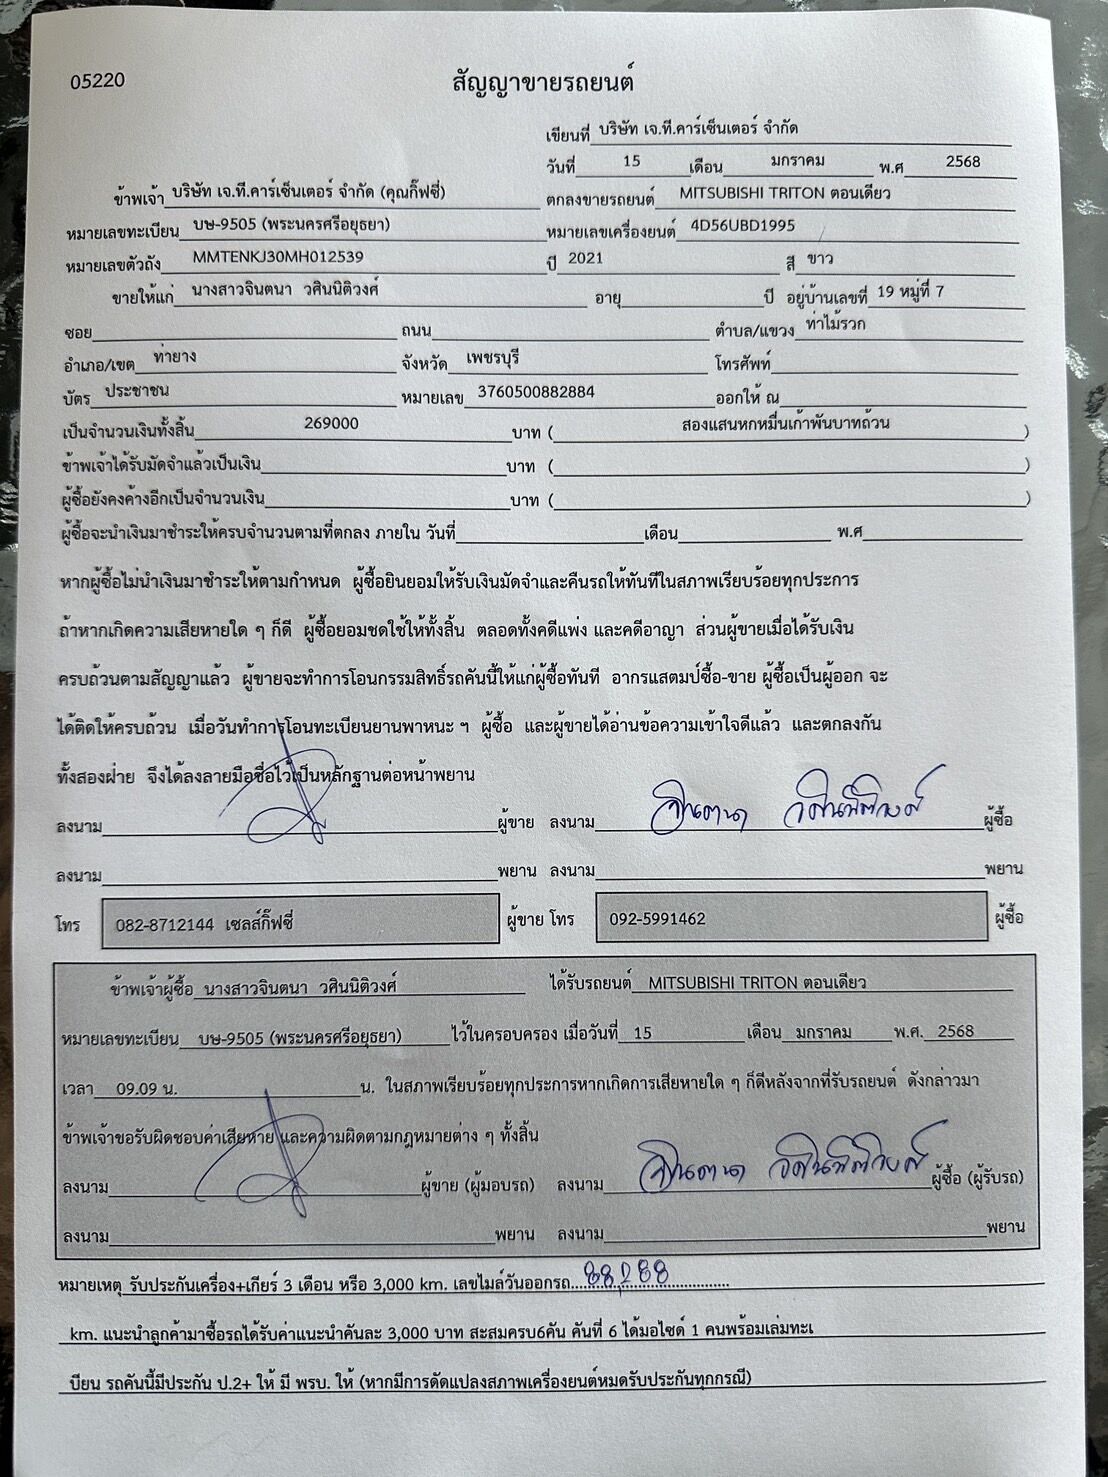 05220
สัญญาขายรถยนต์
เขียนที่ บริษัท เจ.ที.คาร์เซ็นเตอร์ จำกัด
วันที่ 15 เดือน มกราคม พ.ศ 2568
ข้าพเจ้า บริษัท เจ.ที.คาร์เซ็นเตอร์ จำกัด (คุณกิ๊ฟซี่) ตกลงขายรถยนต์ MITSUBISHI TRITON ตอนเดียว
หมายเลขทะเบียน บษ-9505 (พระนครศรีอยุธยา) หมายเลขเครื่องยนต์ 4D56UBD1995
หมายเลขตัวถัง MMTENKJ30MH012539 ปี 2021 สี ขาว
ขายให้แก่ นางสาวจินตนา วศินนิติวงศ์ อายุ ปี อยู่บ้านเลขที่ 19 หมู่ที่ 7
ซอย ถนน ตำบล/แขวง ท่าไม้รวก
อำเภอ/เขต ท่ายาง จังหวัด เพชรบุรี โทรศัพท์
บัตร ประชาชน หมายเลข 3760500882884 ออกให้ ณ
เป็นจำนวนเงินทั้งสิ้น 269000 บาท ( สองแสนหกหมื่นเก้าพันบาทถ้วน )
ข้าพเจ้าได้รับมัดจำแล้วเป็นเงิน บาท ( )
ผู้ซื้อยังคงค้างอีกเป็นจำนวนเงิน บาท ( )
ผู้ซื้อจะนำเงินมาชำระให้ครบจำนวนตามที่ตกลง ภายใน วันที่ เดือน พ.ศ
หากผู้ซื้อไม่นำเงินมาชำระให้ตามกำหนด ผู้ซื้อยินยอมให้รับเงินมัดจำและคืนรถให้ทันทีในสภาพเรียบร้อยทุกประการ
ถ้าหากเกิดความเสียหายใด ๆ ก็ดี ผู้ซื้อยอมชดใช้ให้ทั้งสิ้น ตลอดทั้งคดีแพ่ง และคดีอาญา ส่วนผู้ขายเมื่อได้รับเงิน
ครบถ้วนตามสัญญาแล้ว ผู้ขายจะทำการโอนกรรมสิทธิ์รถคันนี้ให้แก่ผู้ซื้อทันที อากรแสตมป์ซื้อ-ขาย ผู้ซื้อเป็นผู้ออก จะ
ได้ติดให้ครบถ้วน เมื่อวันทำการโอนทะเบียนยานพาหนะ ฯ ผู้ซื้อ และผู้ขายได้อ่านข้อความเข้าใจดีแล้ว และตกลงกัน
ทั้งสองฝ่าย จึงได้ลงลายมือชื่อไว้เป็นหลักฐานต่อหน้าพยาน
ลงนาม ผู้ขาย ลงนาม จินตนา วศินนิติวงศ์ ผู้ซื้อ
ลงนาม พยาน ลงนาม พยาน
โทร 082-8712144 เซลส์กิ๊ฟซี่ ผู้ขาย โทร 092-5991462 ผู้ซื้อ
ข้าพเจ้าผู้ซื้อ นางสาวจินตนา วศินนิติวงศ์ ได้รับรถยนต์ MITSUBISHI TRITON ตอนเดียว
หมายเลขทะเบียน บษ-9505 (พระนครศรีอยุธยา) ไว้ในครอบครอง เมื่อวันที่ 15 เดือน มกราคม พ.ศ. 2568
เวลา 09.09 น. น. ในสภาพเรียบร้อยทุกประการหากเกิดการเสียหายใด ๆ ก็ดีหลังจากที่รับรถยนต์ ดังกล่าวมา
ข้าพเจ้าขอรับผิดชอบค่าเสียหาย และความผิดตามกฎหมายต่าง ๆ ทั้งสิ้น
ลงนาม ผู้ขาย (ผู้มอบรถ) ลงนาม จินตนา วศินนิติวงศ์ ผู้ซื้อ (ผู้รับรถ)
ลงนาม พยาน ลงนาม พยาน
หมายเหตุ รับประกันเครื่อง+เกียร์ 3 เดือน หรือ 3,000 km. เลขไมล์วันออกรถ 88,288
km. แนะนำลูกค้ามาซื้อรถได้รับค่าแนะนำคันละ 3,000 บาท สะสมครบ6คัน คันที่ 6 ได้มอไซด์ 1 คนพร้อมเล่มทะเ
บียน รถคันนี้มีประกัน ป.2+ ให้ มี พรบ. ให้ (หากมีการดัดแปลงสภาพเครื่องยนต์หมดรับประกันทุกกรณี)